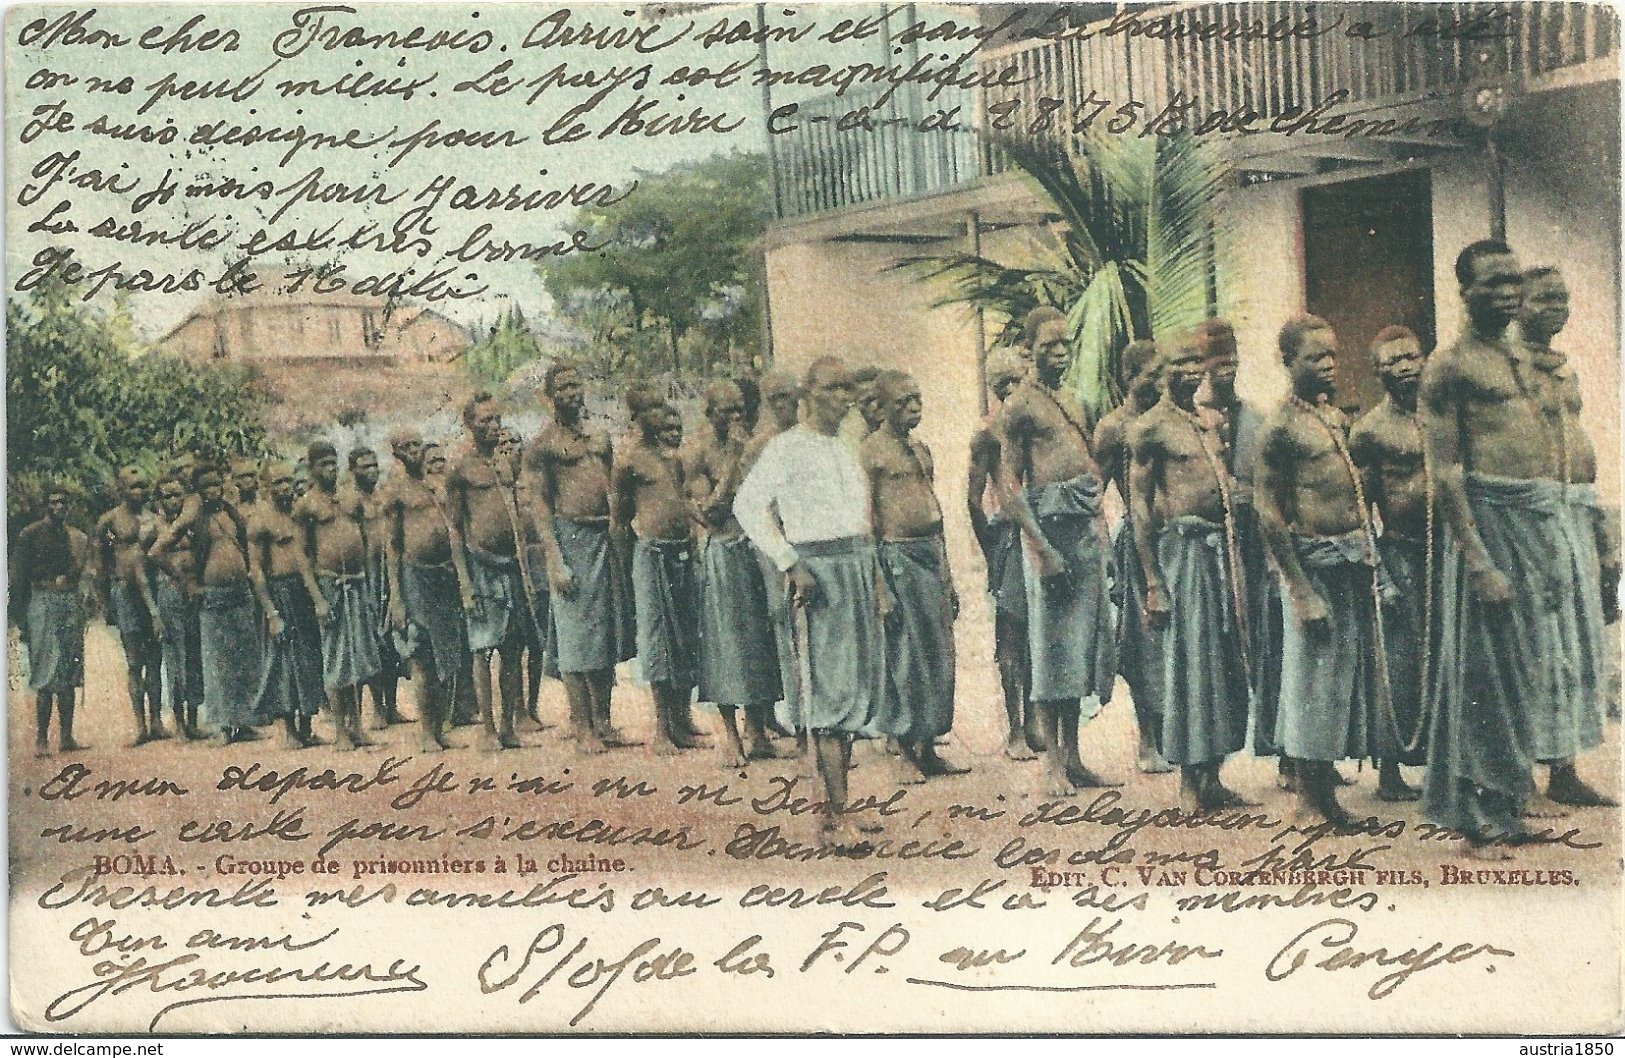 Mon cher François. Arrivé sain et sauf. La traversée a été
on ne peut mieux. Le pays est magnifique
Je suis désigné pour le Kivu c-à-d 2875 K de chemin
J'ai mois pour y arriver
La santé est très bonne.
Je pars le
A mon départ je n'ai vu ni Demol, ni délégation, pas même
une carte pour s'excuser. Remercie les de ma part
BOMA. - Groupe de prisonniers à la chaîne.
EDIT. C. VAN CORTENBERGH FILS, BRUXELLES.
Présente mes amitiés au cercle et à ses membres.
Ton ami
S/of de la F.P. au Kivu
delcampe.net
austria1850